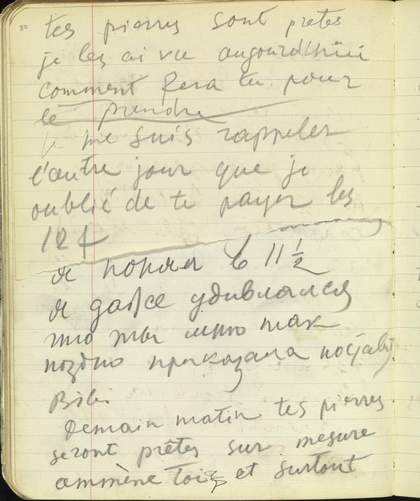 tes pierres sont pretes
je les ai vu aujourd'hui
comment fera tu pour
le prendre
je me suis rappeler
l'autre jour que je
oublié de te payer les
12 f
я поняла в 11 1/2
я даже удивлялся
что ты мне так
поздно приказала
Demain matin tes pierres
seront prêtes sur mesure
ammène toi et surtout